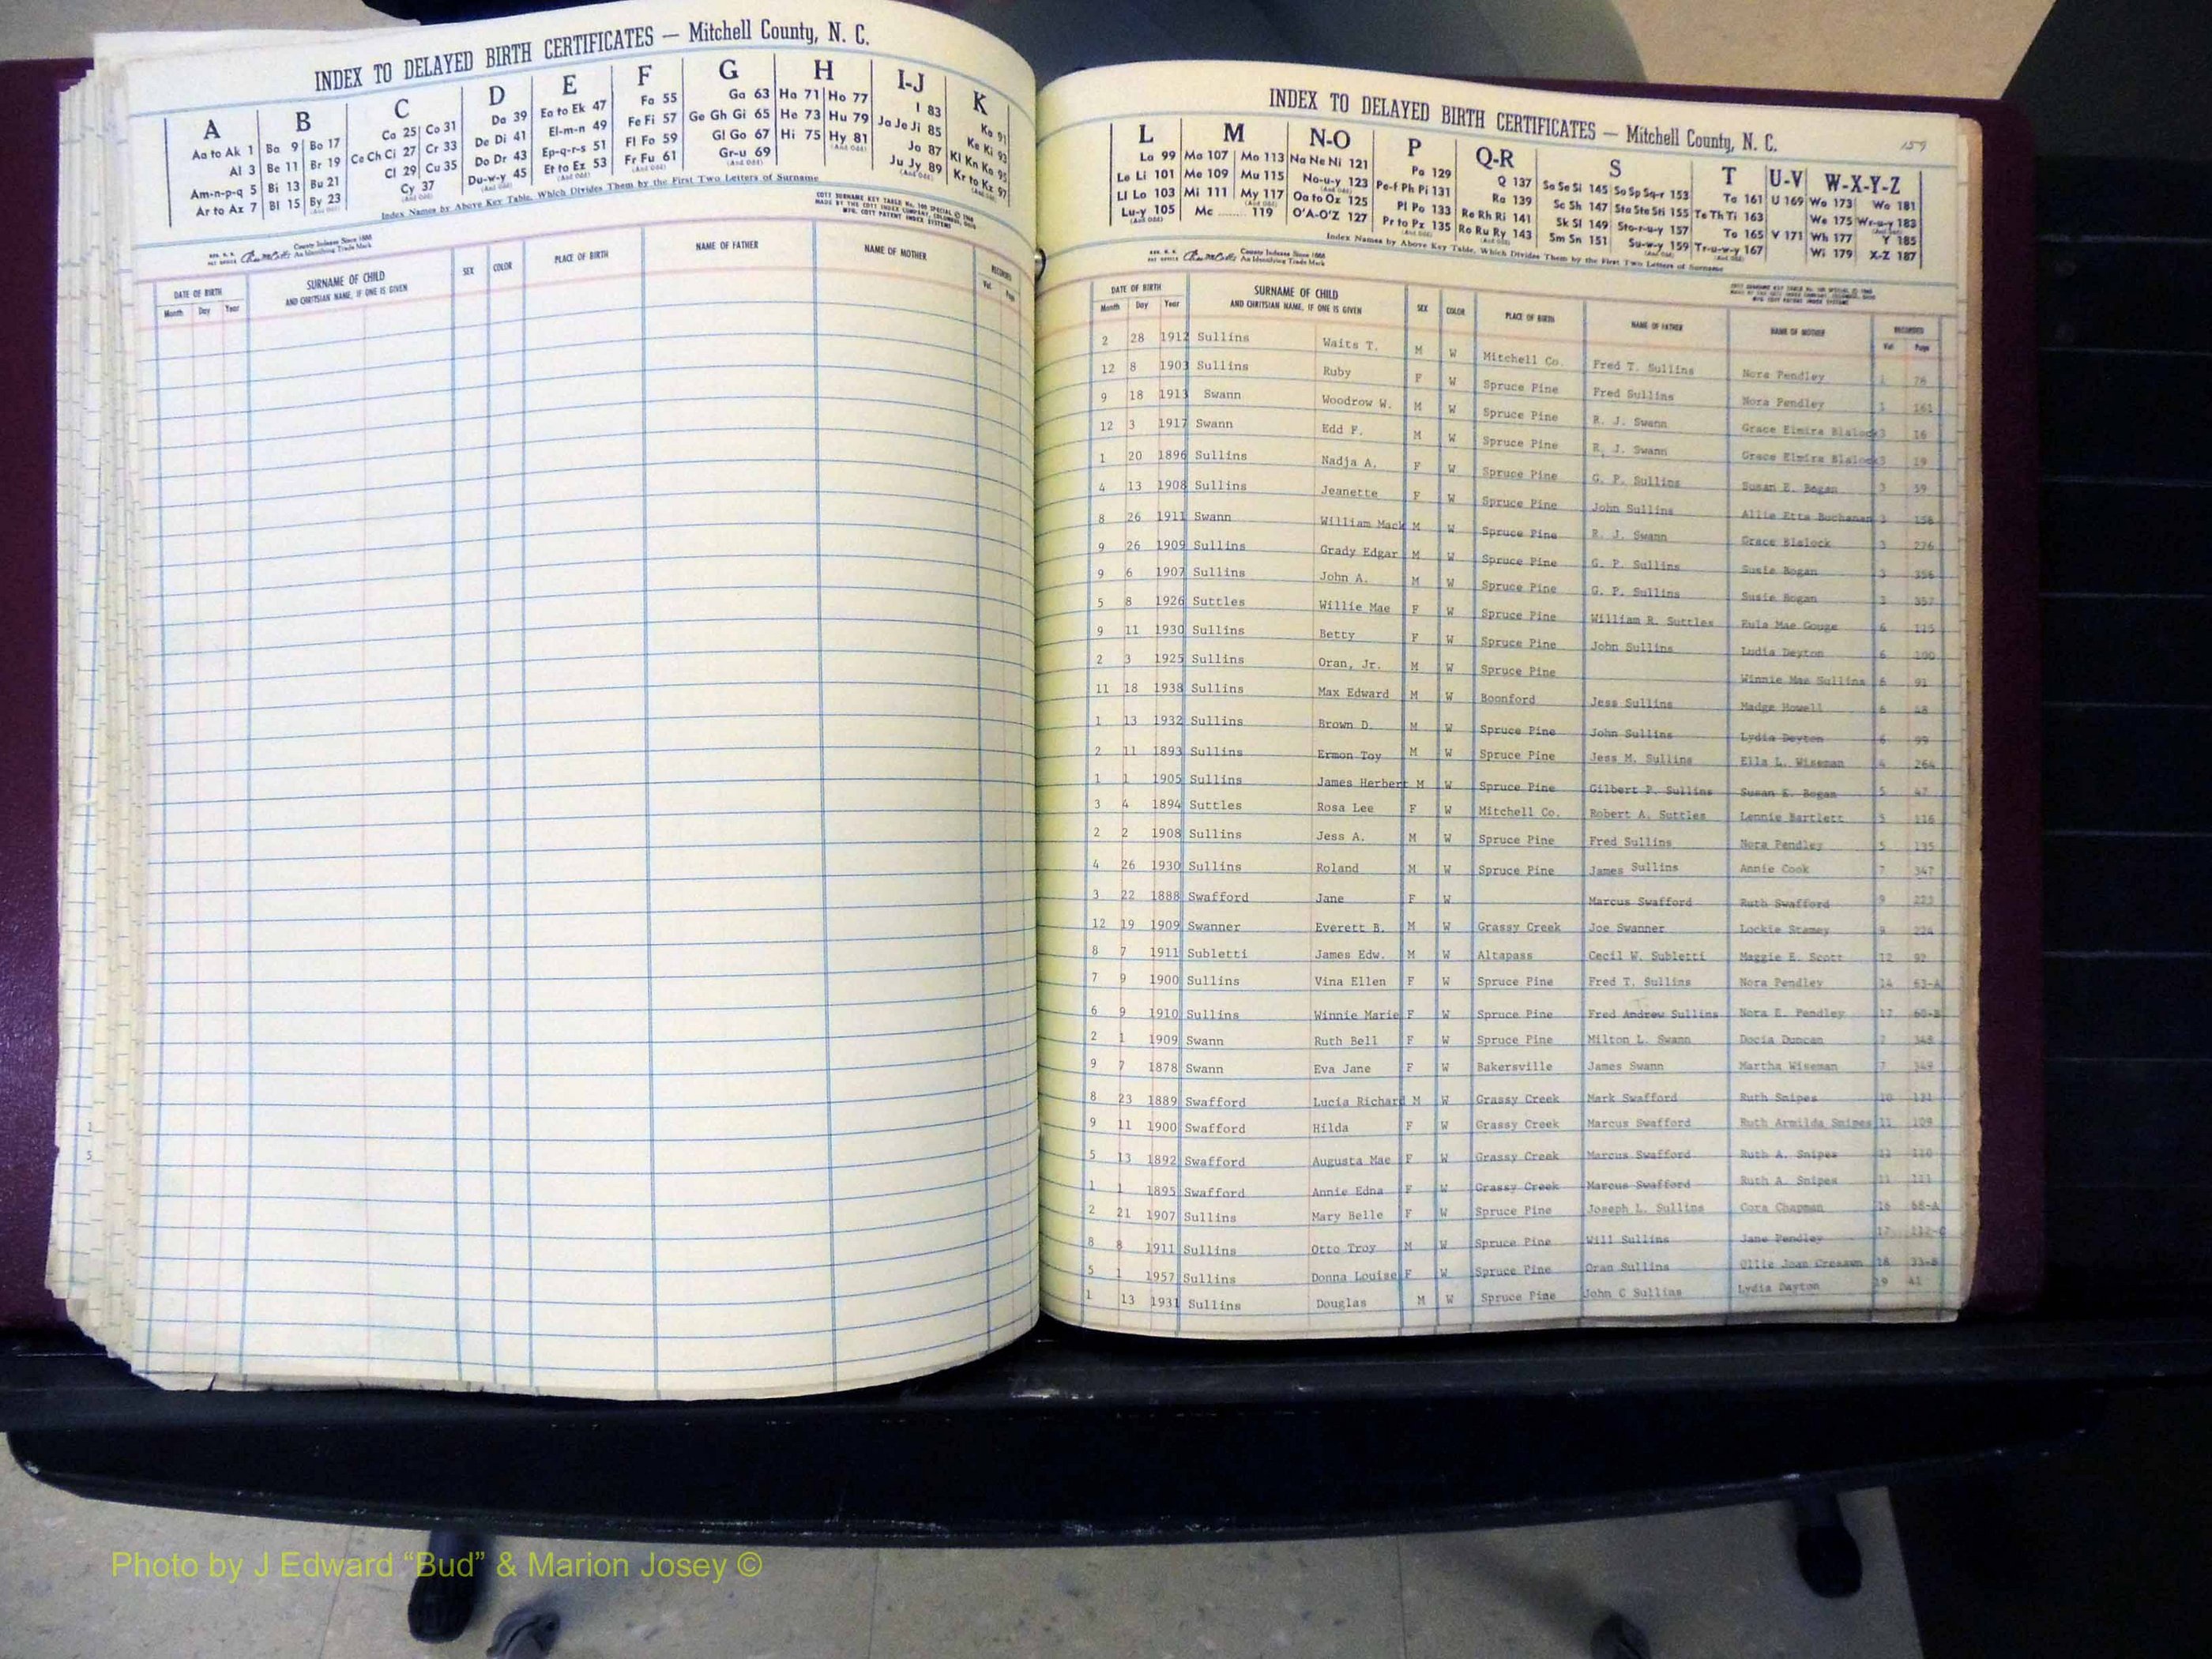 INDEX TO DELAYED BIRTH CERTIFICATES — Mitchell County, N. C.
A B C D E F G H I-J K
Aa to Ak 1 Ba 9 Bo 17 Ca 25 Co 31 Da 39 Ea to Ek 47 Fa 55 Ga 63 Ha 71 Ho 77 I 83 Ka 91
Al 3 Be 11 Br 19 Ce Ch Ci 27 Cr 33 De Di 41 El-m-n 49 Fe Fi 57 Ge Gh Gi 65 He 73 Hu 79 Ja Je Ji 85 Ke Ki 93
Am-n-p-q 5 Bi 13 Bu 21 Cl 29 Cu 35 Do Dr 43 Ep-q-r-s 51 Fl Fo 59 Gl Go 67 Hi 75 Hy 81 Jo 87 Kl Kn Ko 95
Ar to Az 7 Bl 15 By 23 Cy 37 Du-w-y 45 Et to Ez 53 Fr Fu 61 Gr-u 69 Ju Jy 89 Kr to Kz 97
Index Names by Above Key Table, Which Divides Them by the First Two Letters of Surname
County Indexes Since 1888
An Identifying Trade Mark
DATE OF BIRTH SURNAME OF CHILD SEX COLOR PLACE OF BIRTH NAME OF FATHER NAME OF MOTHER RECORDED
Month Day Year AND CHRITSIAN NAME, IF ONE IS GIVEN Vol. Page
1
5
INDEX TO DELAYED BIRTH CERTIFICATES — Mitchell County, N. C.
159
L M N-O P Q-R S T U-V W-X-Y-Z
La 99 Ma 107 Mo 113 Na Ne Ni 121 Pa 129 Q 137 Sa Se Si 145 So Sp Sq-r 153 Ta 161 U 169 Wa 173 Wo 181
Le Li 101 Me 109 Mu 115 No-u-y 123 Pe-f Ph Pi 131 Ra 139 Sc Sh 147 Sta Ste Sti 155 Te Th Ti 163 We 175 Wr-u-y 183
Ll Lo 103 Mi 111 My 117 Oa to Oz 125 Pl Po 133 Re Rh Ri 141 Sk Sl 149 Sto-r-u-y 157 To 165 V 171 Wh 177 Y 185
Lu-y 105 Mc 119 O'A-O'Z 127 Pr to Pz 135 Ro Ru Ry 143 Sm Sn 151 Su-w-y 159 Tr-u-w-y 167 Wi 179 X-Z 187
Index Names by Above Key Table, Which Divides Them by the First Two Letters of Surname
County Indexes Since 1888
An Identifying Trade Mark
DATE OF BIRTH SURNAME OF CHILD SEX COLOR PLACE OF BIRTH NAME OF FATHER NAME OF MOTHER RECORDED
Month Day Year AND CHRITSIAN NAME, IF ONE IS GIVEN Vol. Page
2 28 1912 Sullins Waits T. M W Mitchell Co. Fred T. Sullins Nora Pendley 1 76
12 8 1903 Sullins Ruby F W Spruce Pine Fred Sullins Nora Pendley 1 161
9 18 1913 Swann Woodrow W. M W Spruce Pine R. J. Swann Grace Elmira Blalock 3 16
12 3 1917 Swann Edd F. M W Spruce Pine R. J. Swann Grace Elmira Blalock 3 19
1 20 1896 Sullins Nadja A. F W Spruce Pine G. P. Sullins Susan E. Bogan 3 59
4 13 1908 Sullins Jeanette F W Spruce Pine John Sullins Allie Etta Buchanan 3 158
8 26 1911 Swann William Mack M W Spruce Pine R. J. Swann Grace Blalock 3 226
9 26 1909 Sullins Grady Edgar M W Spruce Pine G. P. Sullins Susie Bogan 3 356
9 6 1907 Sullins John A. M W Spruce Pine G. P. Sullins Susie Bogan 3 357
5 8 1926 Suttles Willie Mae F W Spruce Pine William R. Suttles Eula Mae Gouge 6 125
9 11 1930 Sullins Betty F W Spruce Pine John Sullins Ludia Deyton 6 100
2 3 1925 Sullins Oran, Jr. M W Spruce Pine Winnie Mae Sullins 6 91
11 18 1938 Sullins Max Edward M W Boonford Jess Sullins Madge Howell 6 48
1 13 1932 Sullins Brown D. M W Spruce Pine John Sullins Lydia Deyton 6 99
2 11 1893 Sullins Ermon Toy M W Spruce Pine Jess M. Sullins Ella L. Wiseman 4 264
1 1 1905 Sullins James Herbert M W Spruce Pine Gilbert P. Sullins Susan E. Bogan 5 47
3 4 1894 Suttles Rosa Lee F W Mitchell Co. Robert A. Suttles Lennie Bartlett 5 116
2 2 1908 Sullins Jess A. M W Spruce Pine Fred Sullins Nora Pendley 5 135
4 26 1930 Sullins Roland M W Spruce Pine James Sullins Annie Cook 7 347
3 22 1888 Swafford Jane F W Marcus Swafford Ruth Swafford 9 223
12 19 1909 Swanner Everett B. M W Grassy Creek Joe Swanner Lockie Stamey 9 224
8 7 1911 Subletti James Edw. M W Altapass Cecil W. Subletti Maggie E. Scott 12 92
7 9 1900 Sullins Vina Ellen F W Spruce Pine Fred T. Sullins Nora Pendley 14 63-A
6 9 1910 Sullins Winnie Marie F W Spruce Pine Fred Andrew Sullins Nora E. Pendley 17 60-B
2 1 1909 Swann Ruth Bell F W Spruce Pine Milton L. Swann Docia Duncan 7 348
9 7 1878 Swann Eva Jane F W Bakersville James Swann Martha Wiseman 7 349
8 23 1889 Swafford Lucia Richard M W Grassy Creek Mark Swafford Ruth Snipes 10 131
9 11 1900 Swafford Hilda F W Grassy Creek Marcus Swafford Ruth Armilda Snipes 11 109
5 13 1892 Swafford Augusta Mae F W Grassy Creek Marcus Swafford Ruth A. Snipes 11 110
1 1 1895 Swafford Annie Edna F W Grassy Creek Marcus Swafford Ruth A. Snipes 11 111
2 21 1907 Sullins Mary Belle F W Spruce Pine Joseph L. Sullins Cora Chapman 16 68-A
8 8 1911 Sullins Otto Troy M W Spruce Pine Will Sullins Jane Pendley 17 112-C
5 1 1957 Sullins Donna Louise F W Spruce Pine Oran Sullins Ollie Joan 18 33-B
1 13 1931 Sullins Douglas M W Spruce Pine John C Sullins Lydia Dayton 19 41
Photo by J Edward “Bud” & Marion Josey ©